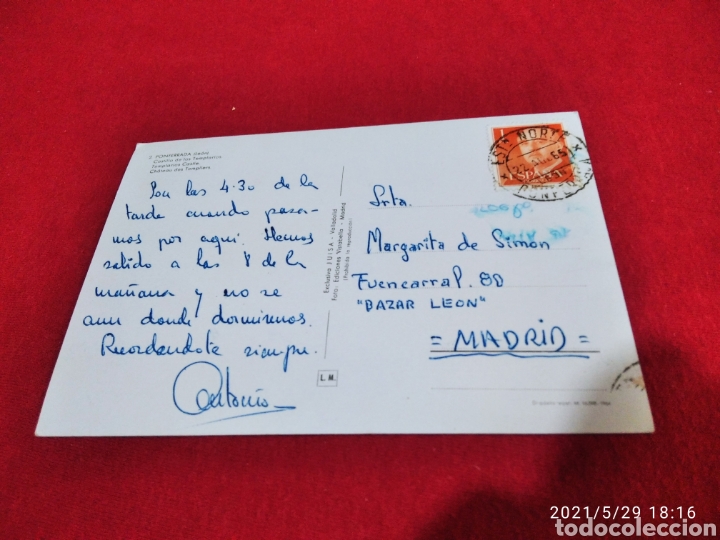 7 PONFERRADA (León)
Castillo de los Templarios
Templarios Castle
Château des Templiers
Son las 4.30 de la
tarde cuando pasa-
mos por aquí. Hemos
salido a las 8 de la
mañana y no se
aun donde dormiremos.
Recordandote siempre.
Antonio
Exclusiva FUISA - Valladolid
Foto. Ediciones Vistabella - Madrid
(Prohibida la reproducción)
L. M.
1
ESPAÑA
ESTN NORTE
Srta.
Margarita de Simon
Fuencarral. 80
"BAZAR LEON"
= MADRID =
2021/5/29 18:16
todocoleccion